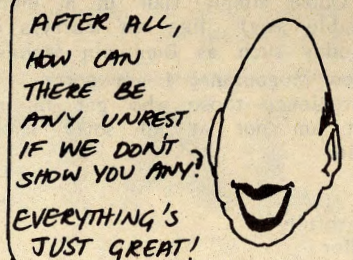 AFTER ALL,
HOW CAN
THERE BE
ANY UNREST
IF WE DON'T
SHOW YOU ANY?
EVERYTHING'S
JUST GREAT!